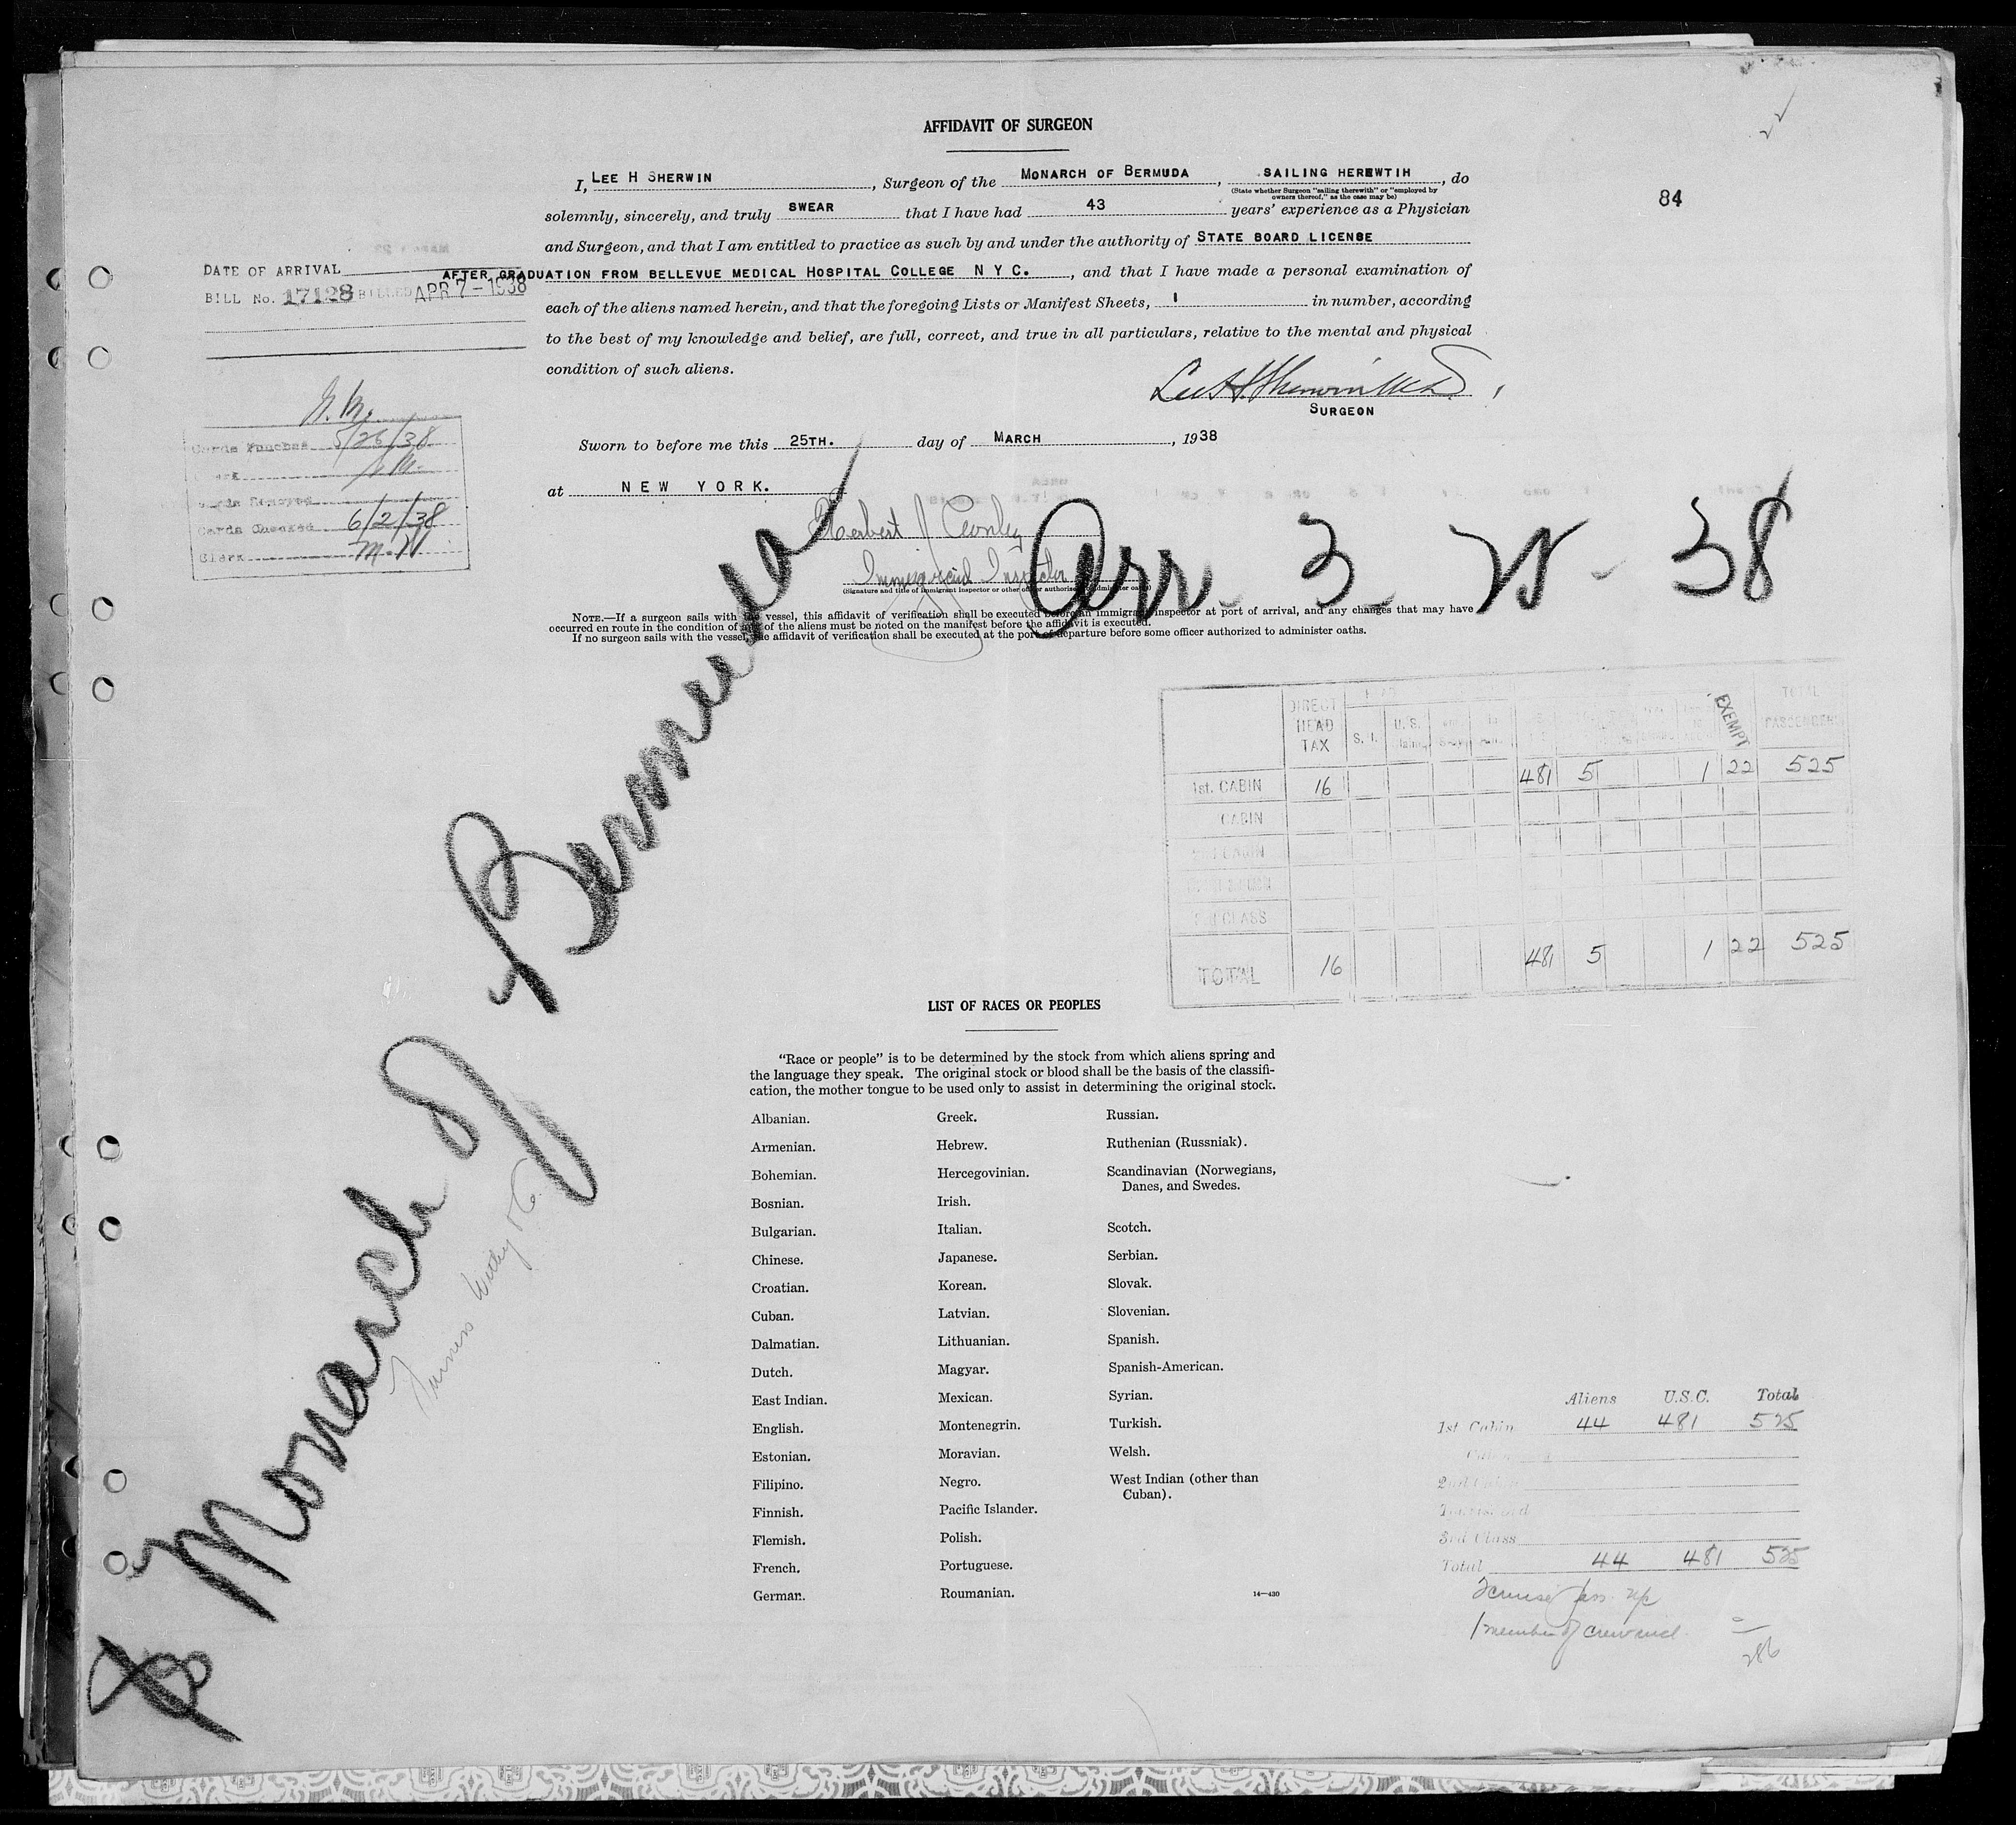 AFFIDAVIT OF SURGEON
I, LEE H SHERWIN, Surgeon of the MONARCH OF BERMUDA, SAILING HEREWTIH, do
(State whether Surgeon "sailing therewith" or "employed by owners thereof," as the case may be)
84
solemnly, sincerely, and truly SWEAR that I have had 43 years' experience as a Physician
and Surgeon, and that I am entitled to practice as such by and under the authority of STATE BOARD LICENSE
AFTER GRADUATION FROM BELLEVUE MEDICAL HOSPITAL COLLEGE N Y C., and that I have made a personal examination of
each of the aliens named herein, and that the foregoing Lists or Manifest Sheets, 1 in number, according
to the best of my knowledge and belief, are full, correct, and true in all particulars, relative to the mental and physical
condition of such aliens.
DATE OF ARRIVAL
BILL No. 17128 BILLED APR 7-1938
Lee H. Sherwin M.D.
SURGEON
Sworn to before me this 25TH. day of MARCH, 1938
at NEW YORK.
Cards Punched 5/26/38
Cards Removed
Cards Checked 6/2/38
Clerk M.N
Herbert J
Immigrant Inspector
(Signature and title of immigrant inspector or other officer authorized to administer oaths)
Arr. 3-25-38
NOTE.—If a surgeon sails with the vessel, this affidavit of verification shall be executed before an immigrant inspector at port of arrival, and any changes that may have
occurred en route in the condition of any of the aliens must be noted on the manifest before the affidavit is executed.
If no surgeon sails with the vessel, the affidavit of verification shall be executed at the port of departure before some officer authorized to administer oaths.
Monarch of Bermuda
Furness Withy & Co.
DIRECT HEAD TAX S. I. U. S. EXEMPT TOTAL PASSENGERS
1st. CABIN 16 481 5 1 22 525
CABIN
TOTAL 16 481 5 1 22 525
LIST OF RACES OR PEOPLES
"Race or people" is to be determined by the stock from which aliens spring and
the language they speak. The original stock or blood shall be the basis of the classifi-
cation, the mother tongue to be used only to assist in determining the original stock.
Albanian.
Armenian.
Bohemian.
Bosnian.
Bulgarian.
Chinese.
Croatian.
Cuban.
Dalmatian.
Dutch.
East Indian.
English.
Estonian.
Filipino.
Finnish.
Flemish.
French.
German.
Greek.
Hebrew.
Hercegovinian.
Irish.
Italian.
Japanese.
Korean.
Latvian.
Lithuanian.
Magyar.
Mexican.
Montenegrin.
Moravian.
Negro.
Pacific Islander.
Polish.
Portuguese.
Roumanian.
Russian.
Ruthenian (Russniak).
Scandinavian (Norwegians,
Danes, and Swedes.
Scotch.
Serbian.
Slovak.
Slovenian.
Spanish.
Spanish-American.
Syrian.
Turkish.
Welsh.
West Indian (other than
Cuban).
14—430
Aliens U.S.C. Total
1st Cabin 44 481 525
2nd Cabin
3rd Class
Total 44 481 525
1 member of crew incl.
286